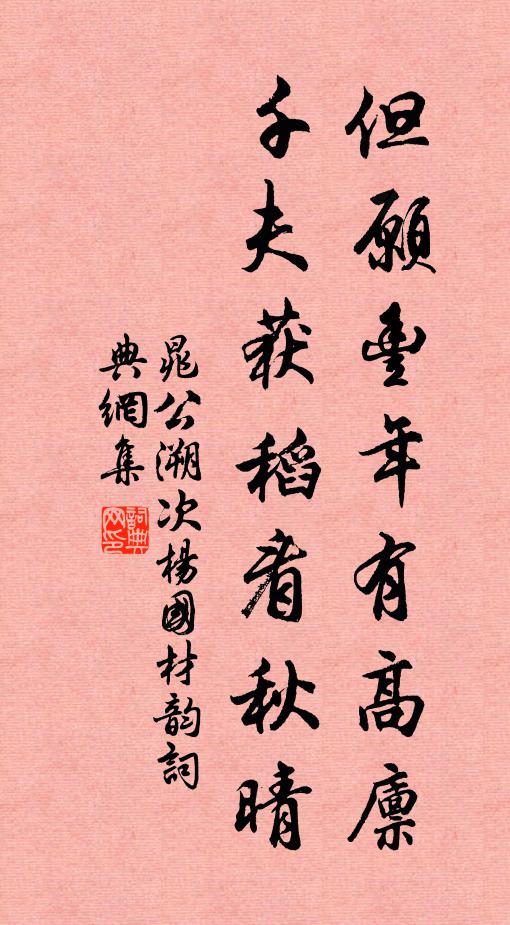 但願豐年有高廪
千夫获稻看秋晴
晁公溯次楊國材韵詞
典網集
詞典網印